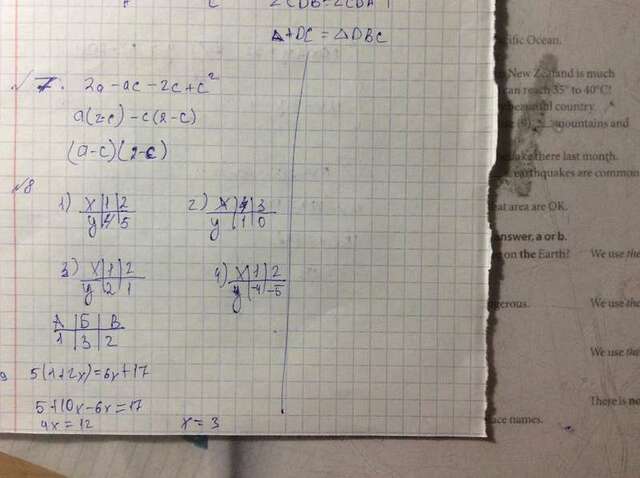 ∠CDB=∠CDA
△ADC = △DBC
√7. 2a - ac - 2c + c²
a(2-c) - c(2-c)
(a-c)(2-c)
√8
1) x | 1 | 2
y | 4 | 5
2) x | 4 | 3
y | 1 | 0
3) x | 1 | 2
y | 2 | 1
4) x | 1 | 2
y | -4 | -5
А | Б | В
1 | 3 | 2
9 5(1+2x)=6x+17
5+10x-6x=17
4x = 12 x = 3
ific Ocean.
New Zealand is much
can reach 35° to 40°C!
beautiful country.
mountains and
there last month.
earthquakes are common
at area are OK.
answer, a or b.
on the Earth? We use the
ngerous. We use the
We use the
There is no
ace names.